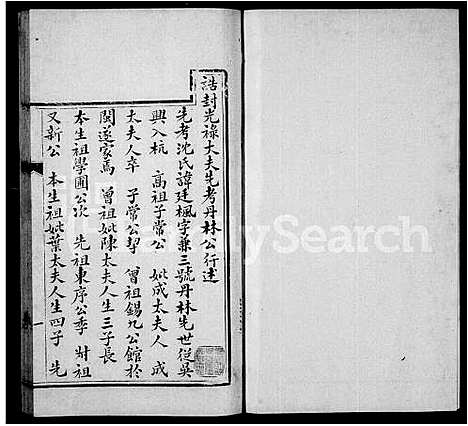 誥封光祿大夫先考丹林公行述
先考沈氏諱廷楓字兼三號丹林先世從吳
興入杭 高祖子常公 妣成太夫人 成
太夫人卒 子常公挈 曾祖錫九公館於
閩遂家焉 曾祖妣陳太夫人生三子長
本生祖學圃公次 先祖東序公季 尗祖
又新公 本生祖妣葉太夫人生四子 先
Search